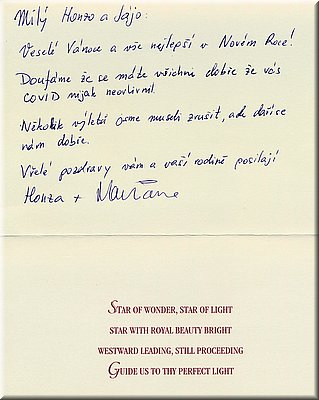 Milý Honzo a Jájo:
Veselé Vánoce a vše nejlepší v Novém Roce!
Doufáme že se máte všichni dobře že vás
COVID nijak neovlivnil.
Několik výletů jsme museli zrušit, ale daří se
nám dobře.
Vřelé pozdravy vám a vaší rodině posílají
Honza +
STAR OF WONDER, STAR OF LIGHT
STAR WITH ROYAL BEAUTY BRIGHT
WESTWARD LEADING, STILL PROCEEDING
GUIDE US TO THY PERFECT LIGHT